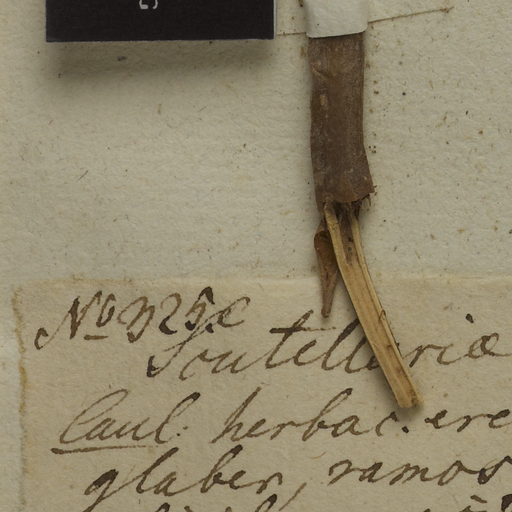 No 325.
Scutellariæ
Caul: herbac. erec
glaber, ramos